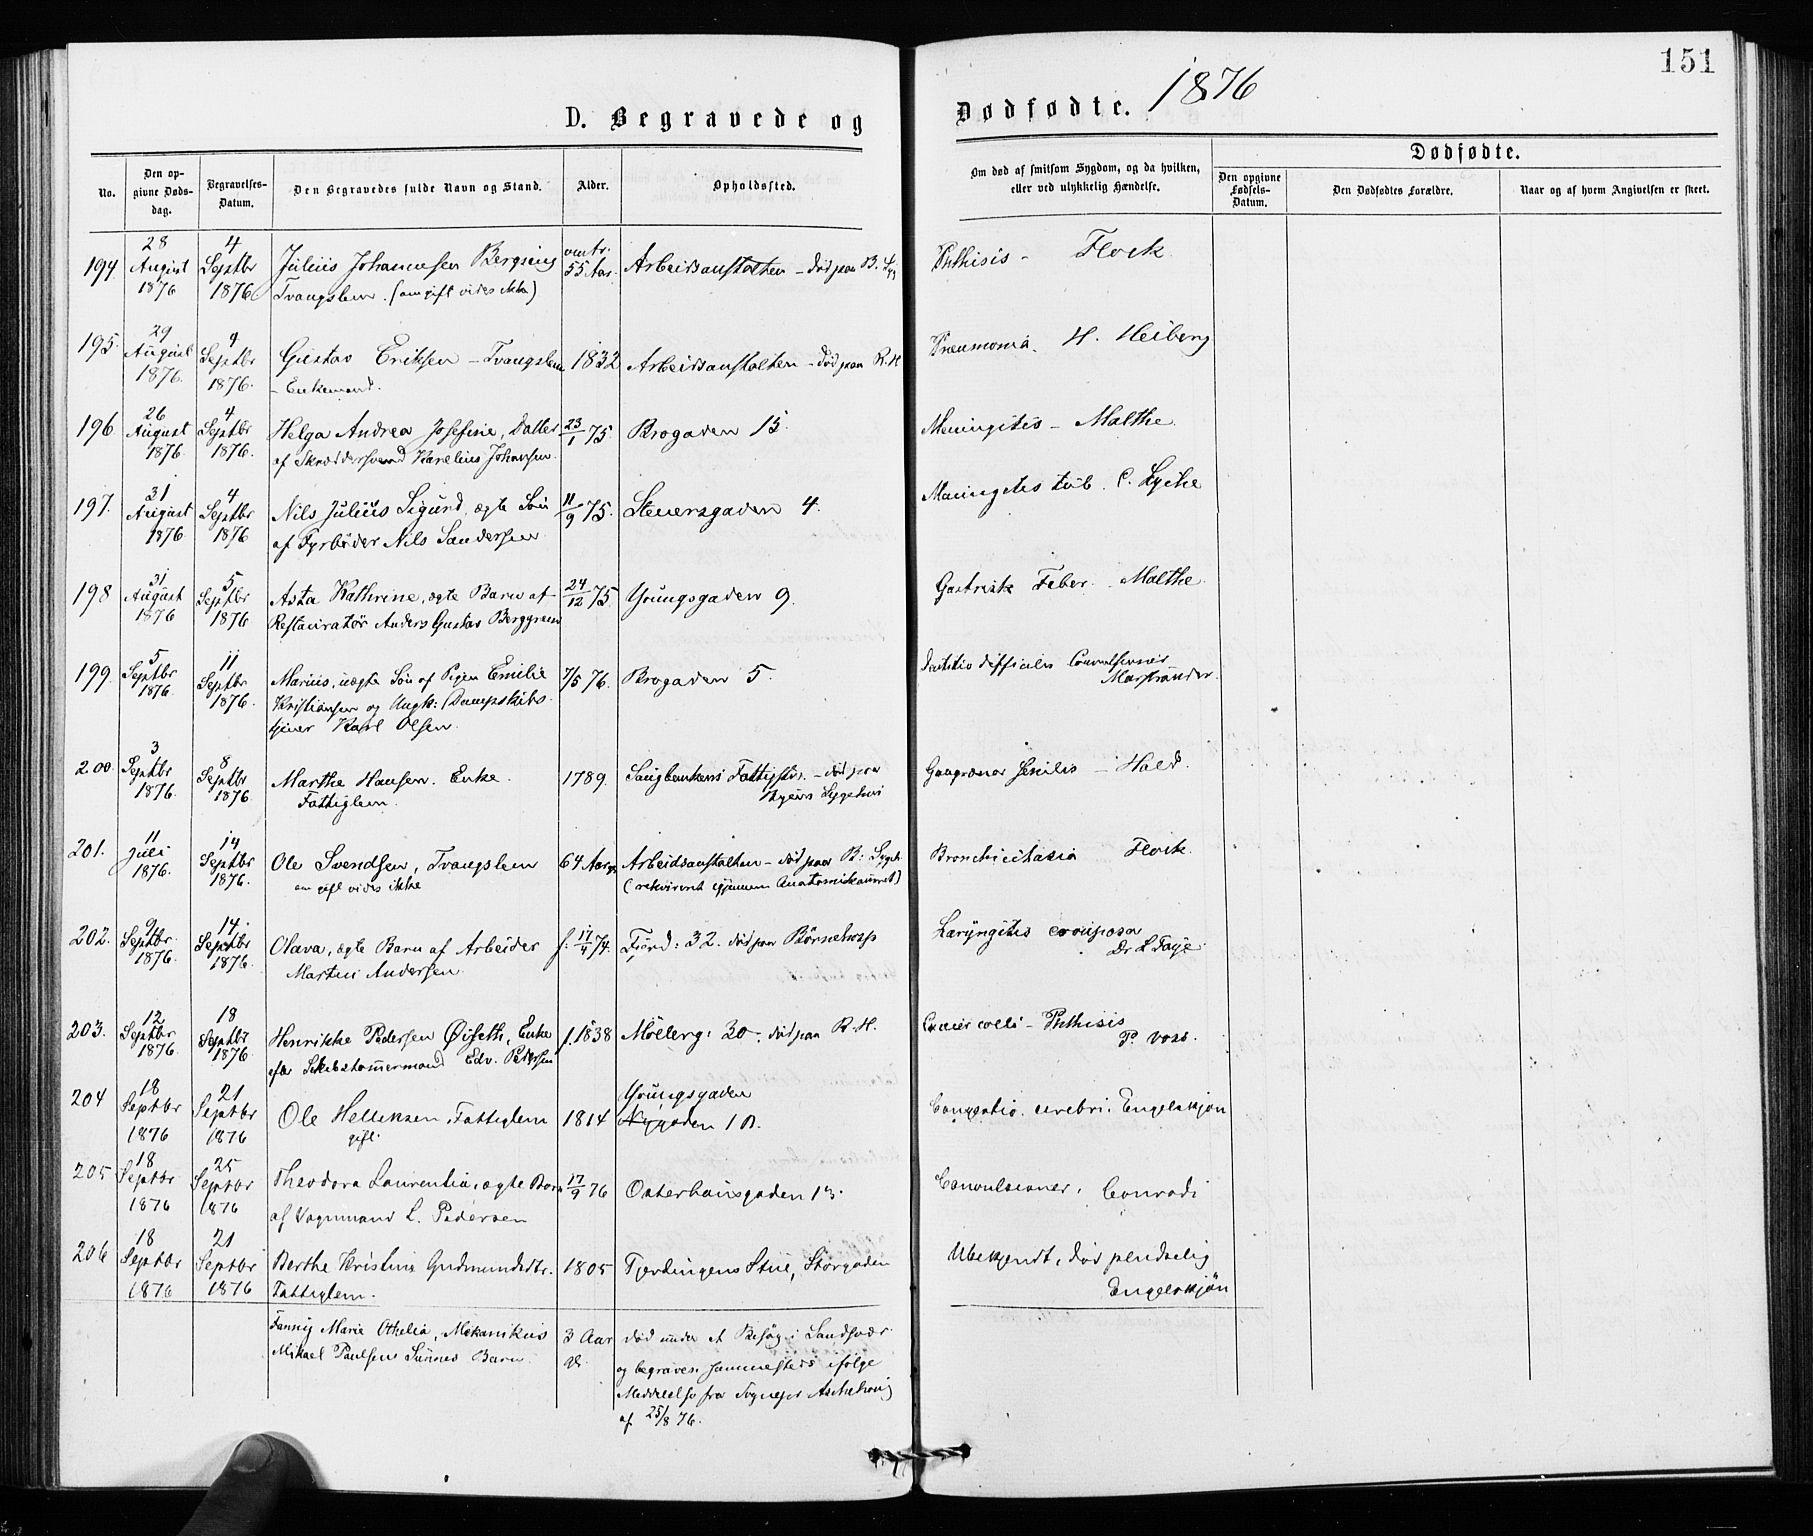 151
D. Begravede og Dødfødte. 1876
No.
Den opgivne Dødsdag.
Begravelses-Datum.
Den Begravedes fulde Navn og Stand.
Alder.
Opholdssted.
Om død af smitsom Sygdom, og da hvilken, eller ved ulykkelig Hændelse.
Dødfødte.
Den opgivne Fødsels-Datum.
Den Dødfødtes Forældre.
Naar og af hvem Angivelsen er skeet.
194. 28 August 1876 4 Septbr 1876 Julius Johannesen omtr. 55 Aar. Arbeidsanstalten - død paa B. Phthisis - Flock
Tvangslem. (om gift vides ikke)
195. 29 August 1876. 4 Septbr 1876. Gustav Eriksen - Tvangslem 1832 Arbeidsanstalten - død paa R.H Pneumonia. H. Heiberg
- Enkemand.
196 26 August 1876. 4 Septbr 1876. Helga Andrea Josefine, Datter 23/1 75. Brogaden 15. Meningitis - Malthe.
af Skræddersvend Karelius Johansen.
197. 31 August 1876 4 Septbr 1876 Nils Julius Sigurd, ægte Søn 11/9 75. Stenersgaden 4. Meningitis tub. C. Lyche
af Fyrbøder Nils Sandersen
198 31 August 1876 5 Septbr 1876 Asta Kathrine, ægte Barn af 24/12 75. Youngsgaden 9. Gastrisk Feber. Malthe.
Restauratør Anders Gustav Berggreen
199. 5 Septbr 1876. 11 Septbr 1876. Marius, uægte Søn af Pigen Emilie 7/5 76. Brogaden 5. Dentitio difficilis Convulsioner
Kristiansen og Ungk: Dampskibs- Marstrander.
tjener Karl Olsen.
200. 3 Septbr 1876. 8 Septbr 1876. Marthe Hansen. Enke. 1789. Saugbankens Fattigstue - død paa Gangræna senilis - Hald.
Fattiglem. Byens Sygehus
201. 11 Juli 1876. 14 Septbr 1876. Ole Svendsen, Tvangslem 64 Aar Arbeidsanstalten - død paa B: Sygeh. Bronchiectasia Flock.
om gift vides ikke (rekvireret gjennem Anatomikammeret)
202. 9 Septbr. 1876. 14. Septbr 1876. Olava, ægte Barn af Arbeider f. 17/4 74. Fjerd: 32. død paa Børnehosp Laryngitis crouposa
Martin Andersen. Dr. L Faye.
203. 12 Septbr 1876 18 Septbr 1876 Henrikke Pedersen Øiseth, Enke f. 1838 Møllerg: 30. død paa R.H. Cancer colli - Phthisis
efter Skibstømmermand Edv. Pedersen P. Voss.
204 18 Septbr 1876 21 Septbr 1876 Ole Helleksen, Fattiglem 1814 Youngsgaden Congestio cerebri. Engelskjøn
gift. Nygaden 1 B.
205 18 Septbr 1876 25 Septbr 1876 Theodora Laurentia, ægte Barn 17/9 76 Osterhausgaden 13. Convulsioner. Conradi
af Vognmand L. Pedersen
206 18 Septbr 1876 21 Septbr 1876 Berthe Kristine Gudmundsdtr. 1805 Fjerdingens Stue, Storgaden Ubekjendt, død pludselig
Fattiglem. Engelskjøn
Fanny Marie Othelia, Mekanikus 3 Aar død under et Besøg i Sandsvær
Mikael Paulsen Sunnes Barn gl. og begraven sammesteds ifølge
Meddelelse fra Sognepr Aschehoug
af 25/8 76.